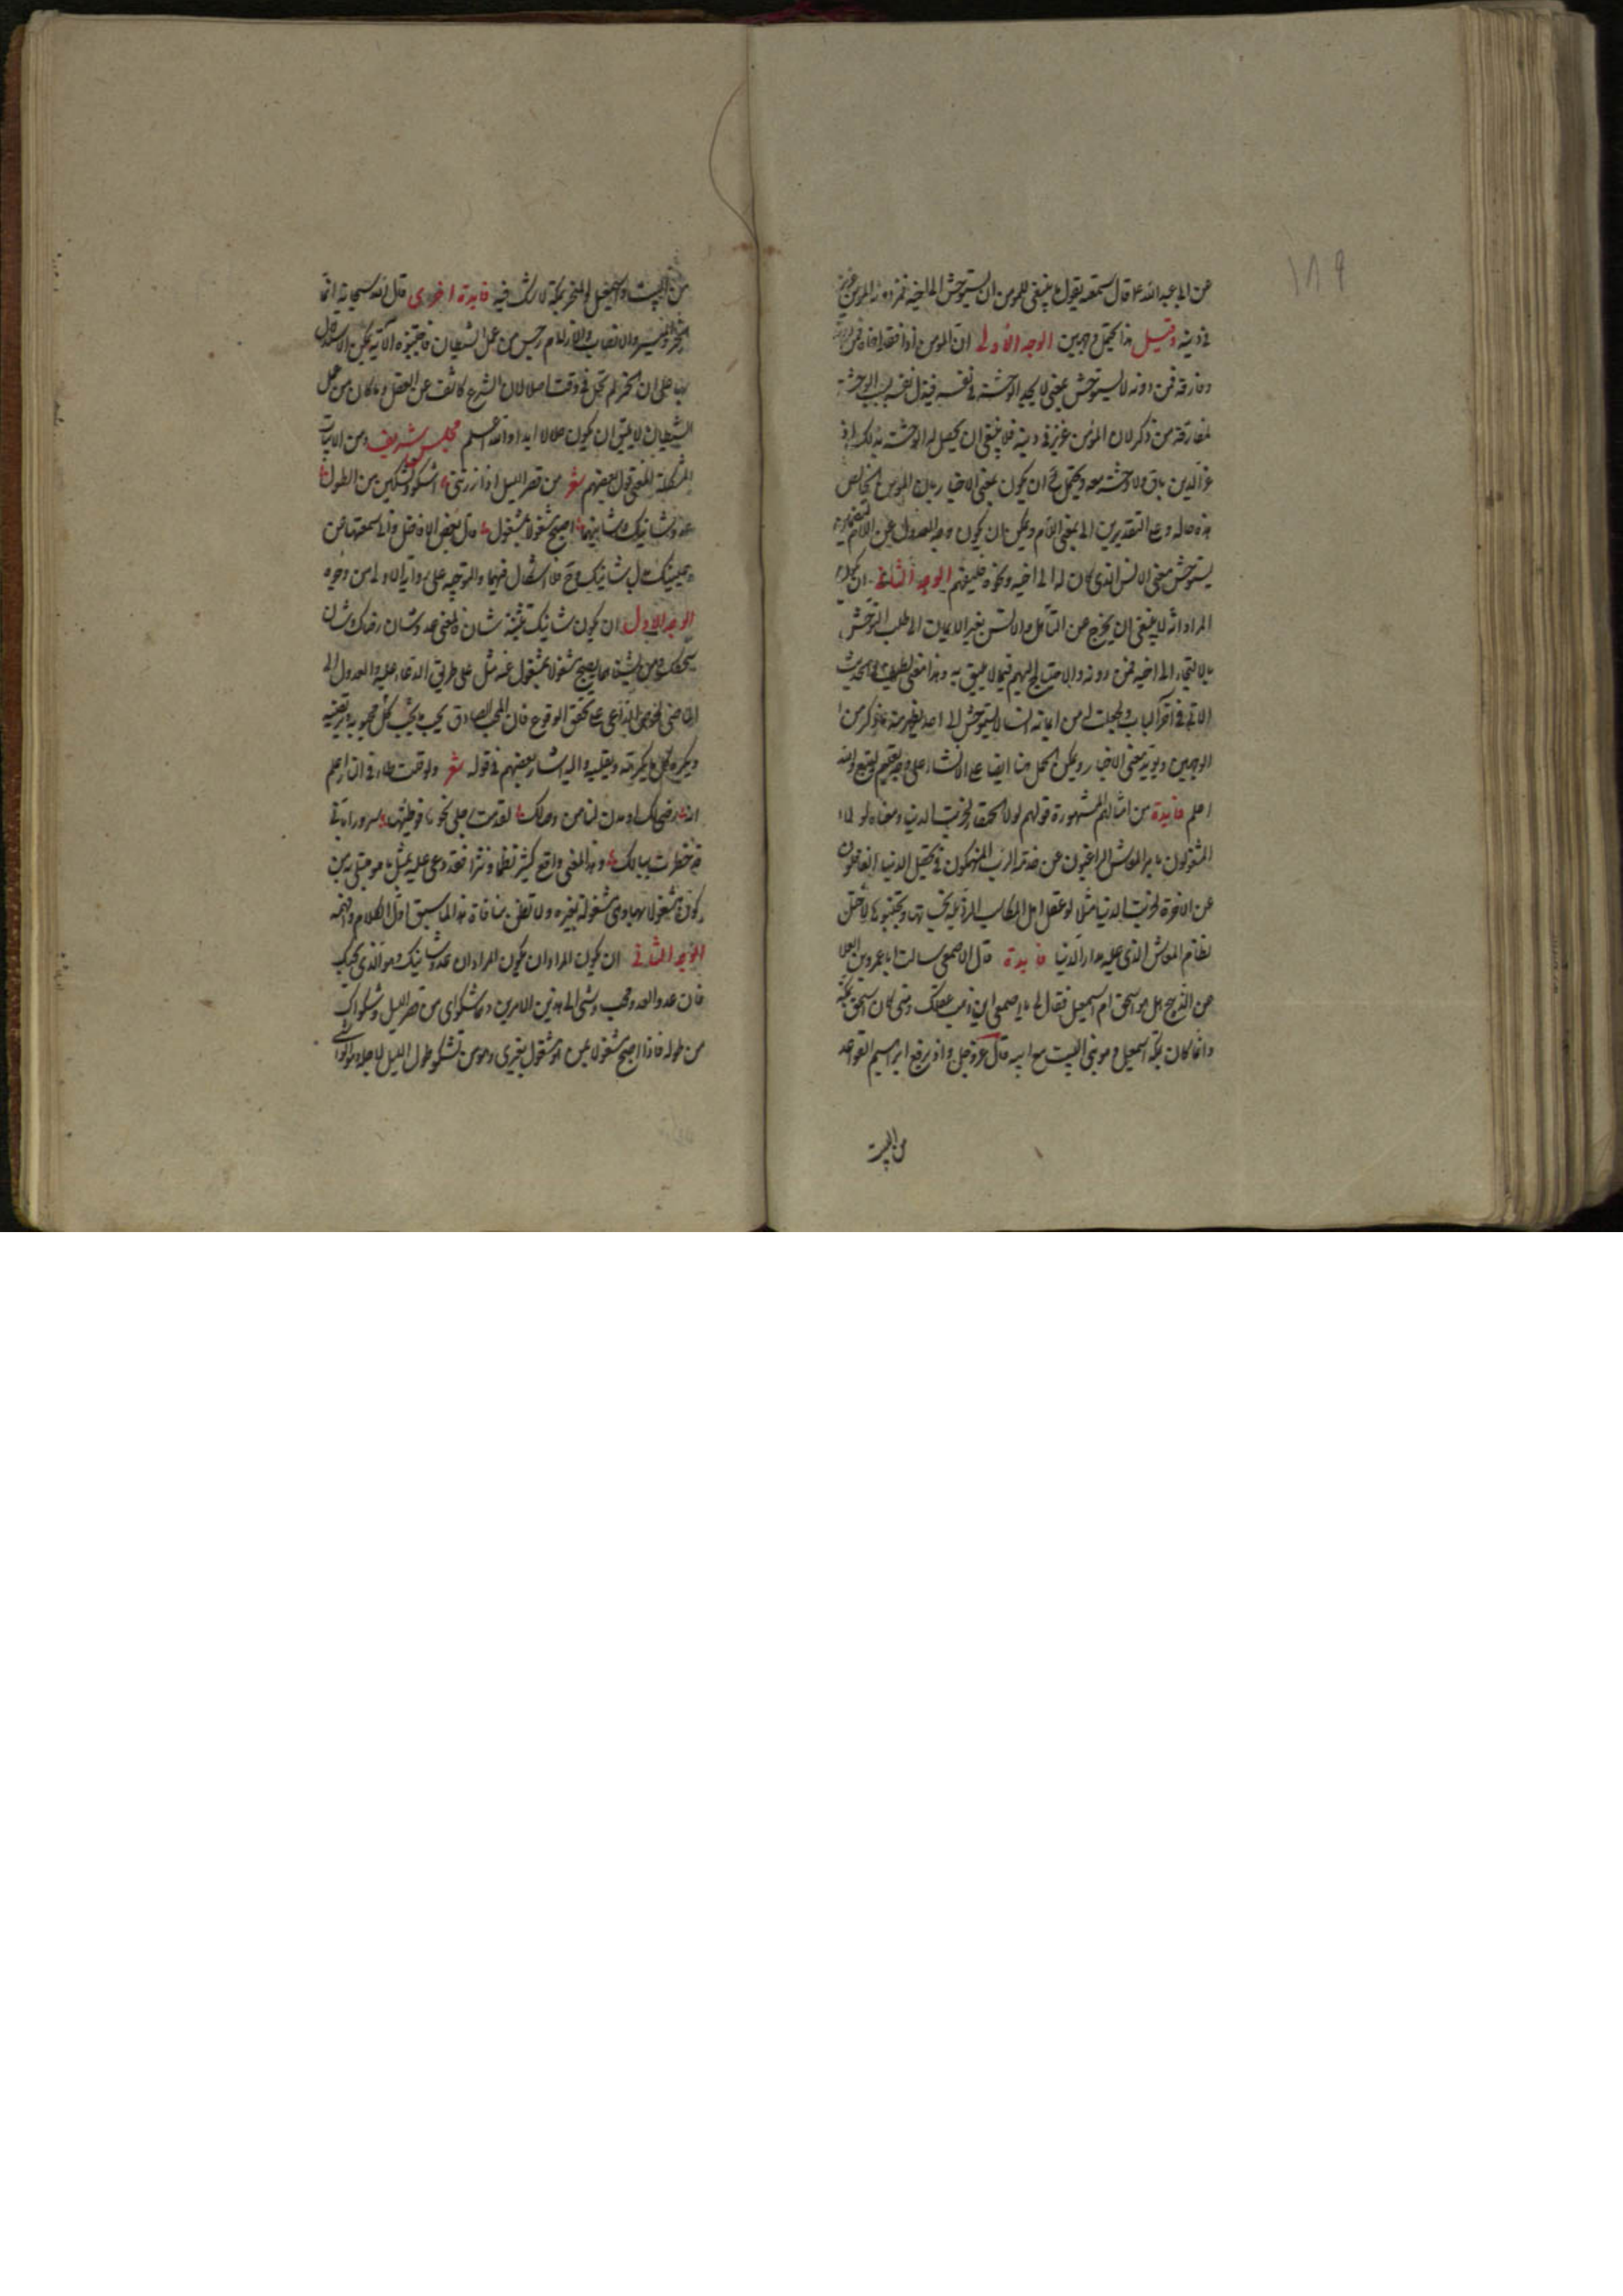 ١٨٩
عن ابي عبد الله ع قال سمعته يقول ما ينبغي للمومن ان يستوحش الى اخيه فمن دونه المومن عزيز
في دينه وقيل هذا يحتمل وجهين الوجه الأولى ان المومن اذا فقد اخاه
وفارقه فمن دونه لا يستوحش بمعنى لا يجد الوحشة في نفسه فيذل نفسه بسبب الوحشة
لمفارقة من ذكر لان المؤمن عزيز في دينه فلا ينبغي ان يحصل له الوحشة بذلك اذ
عز الدين باق ولا وحشة معه ويحتمل ح ان يكون بمعنى الاخبار بان المومن الخالص
هذه حاله وعلى التقديرين الى بمعنى اللام ويمكن ان يكون وجه العدول عن اللام
يستوحش معنى الانس الذي كان له الى اخيه ونحوه الوجه الثاني ان يكون
المراد انه لا ينبغي ان يخرج عن التأمل والانس بغير الايمان الى طلب التوحش
بالالتجاء الى اخيه فمن دونه والاحتياج اليهم فيما لا يليق به وهذا معنى لطيف والحديث
الاتي في آخر الباب وجعلت له من ايمانه انسا لا يستوحش الى احد يظهر منه ما ذكر من
الوجهين ويؤيد معنى الاخبار ويمكن الحمل هنا ايضا على الانشاء على والله
اعلم فايدة من امثالهم المشهورة قولهم لولا الحمقاء لخربت الدنيا ومعناه لولا
المشغولون بامر المعاش الراغبون عن خدمة الرب المنهمكون في تحصيل الدنيا الغافلون
عن الاخرة لخربت الدنيا مثلا لو عقل اهل المكاسب الرذيلة وتجنبوها لاختل
نظام المعاش الذي عليه مدار الدنيا فايدة قال الاصمعي سالت ابا عمرو بن العلا
عن الذبيح اهل هو اسحق ام اسمعيل فقال لي يا اصمعي اين ذهب عقلك ومتى كان اسحق بمكة
وانما كان بمكة اسمعيل وهو بنى البيت مع ابيه قال عز وجل واذ يرفع ابراهيم القواعد
من البيت
من البيت واسمعيل والمنحر بمكة لا شك فيه فايدة اخرى قال الله سبحانه انما
الخمر والميسر والانصاب والازلام رجس من عمل الشيطان فاجتنبوه الآية يمكن الاستدلال
بها على ان الخمر لم تحل في وقت اصلا لان الشرع كاشف عن العقل وما كان من عمل
الشيطان لا يليق ان يكون حلالا ابدا والله اعلم مجلس شريف ومن الابيات
المشكلة المعنى قول بعضهم شعر من قصر الليل اذا زرتني اشكو وتشكين من الطول
عدو شانيك وشانيهما اصبح مشغولا بمشغول قال بعض الافاضل واني سمعتها من
بدل شانيك وح فلا اشكال فيها والتوجيه على رواية الاولى من وجوه
الوجه الاول ان يكون شانيك تثنية شان والمعنى عدو شان رضاك وشان
سخطك اصبح مشغولا بمشغول عنه مثل على طريق الدعاء عليه والعدول الى
الماضي على تحقق الوقوع فان المحب الصادق يحب ما يحب كل محبوبه ويرتضيه
ويكره كل ما يكرهه ويقليه واليه اشار بعضهم في قوله شعر ولو قلت طأ في النار اعلم
انه رضى لك او مدن لنا من وصالك لقدمت رجلي نحوها فوطئتها سرورا باني
قد خطرت ببالك وهذا المعنى واقع كثير نظما ونثرا فقد دعى عليه بمثل ما هو مبتلى به من
كونه مشغولا بها وهي مشغولة بغيره ولا تظن منافاة هذا لما سبق اول الكلام وافهمه
الوجه الثاني ان يكون المراد ان يكون المراد ان عدو شانيك وهو الذي يحبك
فان عدو العدو محب وشى الى هذين الامرين وهما شكواي من قصر الليل وشكواك
من طوله فاذا اصبح مشغولا بمن هو مشغول بغيري وهو من تشكو طول الليل لاجله